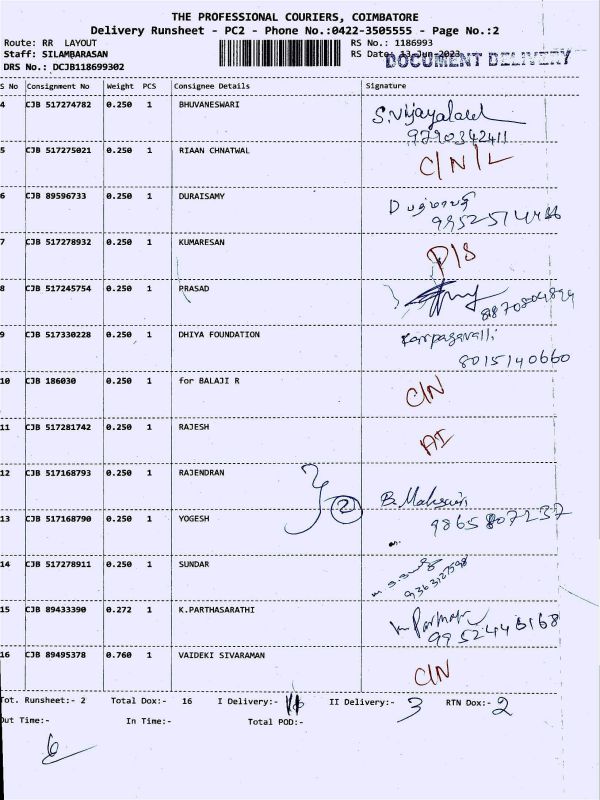 THE PROFESSIONAL COURIERS, COIMBATORE
Delivery Runsheet - PC2 - Phone No.:0422-3505555 - Page No.:2
Route: RR LAYOUT RS No.: 1186993
Staff: SILAMBARASAN RS Date: 13-Jun-2023
DOCUMENT DELIVERY
DRS No.: DCJB118699302
S No Consignment No Weight PCS Consignee Details Signature
4 CJB 517274782 0.250 1 BHUVANESWARI S.Vijayalaxl
9790342411
5 CJB 517275021 0.250 1 RIAAN CHNATWAL C/N/L
6 CJB 89596733 0.250 1 DURAISAMY
7 CJB 517278932 0.250 1 KUMARESAN D/S
8 CJB 517245754 0.250 1 PRASAD
9 CJB 517330228 0.250 1 DHIYA FOUNDATION Karpagavalli
8015140660
10 CJB 186030 0.250 1 for BALAJI R C/N
11 CJB 517281742 0.250 1 RAJESH AI
12 CJB 517168793 0.250 1 RAJENDRAN
2
13 CJB 517168790 0.250 1 YOGESH 9865807237
14 CJB 517278911 0.250 1 SUNDAR
15 CJB 89433390 0.272 1 K.PARTHASARATHI
9952443168
16 CJB 89495378 0.760 1 VAIDEKI SIVARAMAN C/N
Tot. Runsheet:- 2 Total Dox:- 16 I Delivery:- II Delivery:- 3 RTN Dox:- 2
Out Time:- In Time:- Total POD:-
6